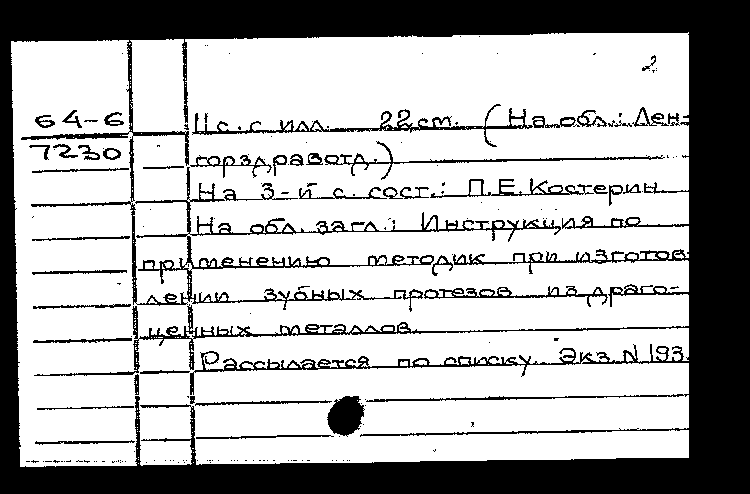 2
64-6
7230
11 с. с илл. 22 ст. (На обл.: Лен-
горздравотд.)
На 3-й с. сост.: П.Е. Костерин
На обл. загл.: Инструкция по
применению методик при изготов-
лении зубных протезов из драго-
ценных металлов.
Рассылается по списку. Экз. N 193.